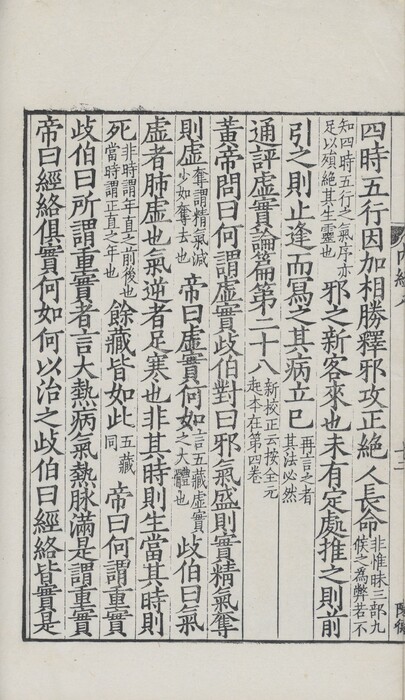 四時五行因加相勝釋邪攻正絕人長命非惟昧三部九候之為弊若不
知四時五行之氣序亦足以殞絕其生靈也邪之新客來也未有定處推之則前
引之則止逢而寫之其病立已再言之者其法必然
通評虛實論篇第二十八新校正云按全元起本在第四卷
黃帝問曰何謂虛實歧伯對曰邪氣盛則實精氣奪
則虛奪謂精氣減少如奪去也帝曰虛實何如言五藏虛實之大體也歧伯曰氣
虛者肺虛也氣逆者足寒也非其時則生當其時則
死非時謂年直之前後也當時謂正直之年也餘藏皆如此五藏同帝曰何謂重實
歧伯曰所謂重實者言大熱病氣熱脉滿是謂重實
帝曰經絡俱實何如何以治之歧伯曰經絡皆實是